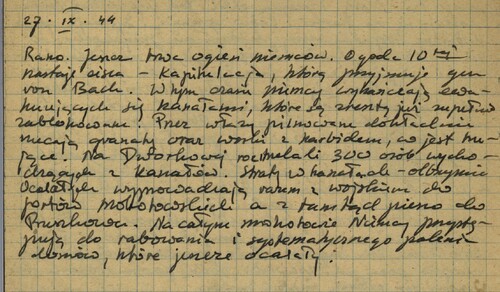 27 · IX · 44
Rano. Jeszcze trwa ogień niemców. O godz 10tej
nastaje cisza – Kapitulacja, którą przyjmuje gen
von Bach. W tym czasie niemcy wykańczają ewa-
kuujących się kanałami, które są zresztą już zupełnie
zablokowane. Przez włazy pilnowane dokładnie
rzucają granaty oraz worki z karbidem, co jest tru-
jące. Na Dworkowej rozstrzelali 300 osób wycho-
dzących z kanałów. Straty w kanałach – olbrzymie
Ocalałych wyprowadzają razem z wojskiem do
fortów mokotowskich a z tamtąd pieszo do
Pruszkowa. Na całym mokotowie Niemcy przystę-
pują do rabowania i systematycznego palenia
domów, które jeszcze ocalały.